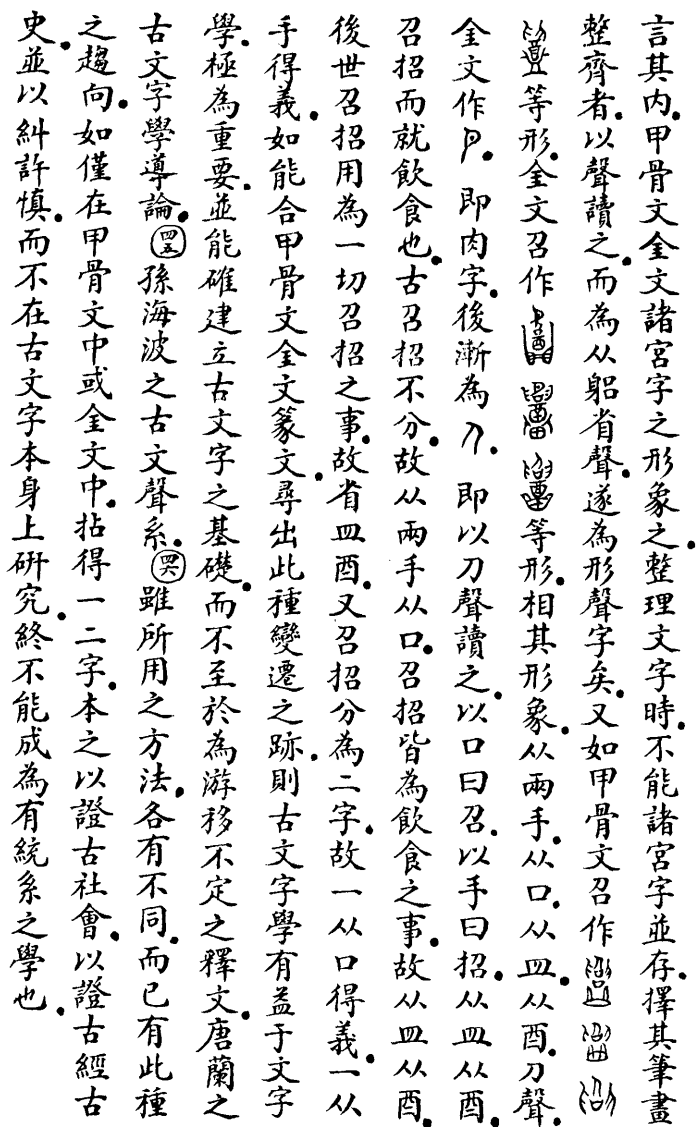 言其内。甲骨文金文諸宮字之形象之。整理文字時。不能諸宮字並存。擇其筆畫
整齊者。以聲讀之。而為从躳省聲。遂為形聲字矣。又如甲骨文召作
等形。金文召作等形。相其形象。从兩手。从口。从皿。从酉。刀聲。
金文作。即肉字。後漸為。即以刀聲讀之。以口曰召。以手曰招。从皿从酉。
召招而就飲食也。古召招不分。故从兩手从口。召招皆為飲食之事。故从皿从酉。
後世召招用為一切召招之事。故省皿酉。又召招分為二字。故一从口得義。一从
手得義。如能合甲骨文金文篆文。尋出此種變遷之跡。則古文字學有益于文字
學。極為重要。並能確建立古文字之基礎。而不至於為游移不定之釋文。唐蘭之
古文字學導論。㊃㊄孫海波之古文聲系。㊃㊅雖所用之方法。各有不同。而已有此種
之趨向。如僅在甲骨文中或金文中。拈得一二字。本之以證古社會。以證古經古
史。並以糾許慎。而不在古文字本身上研究。終不能成為有統系之學也。